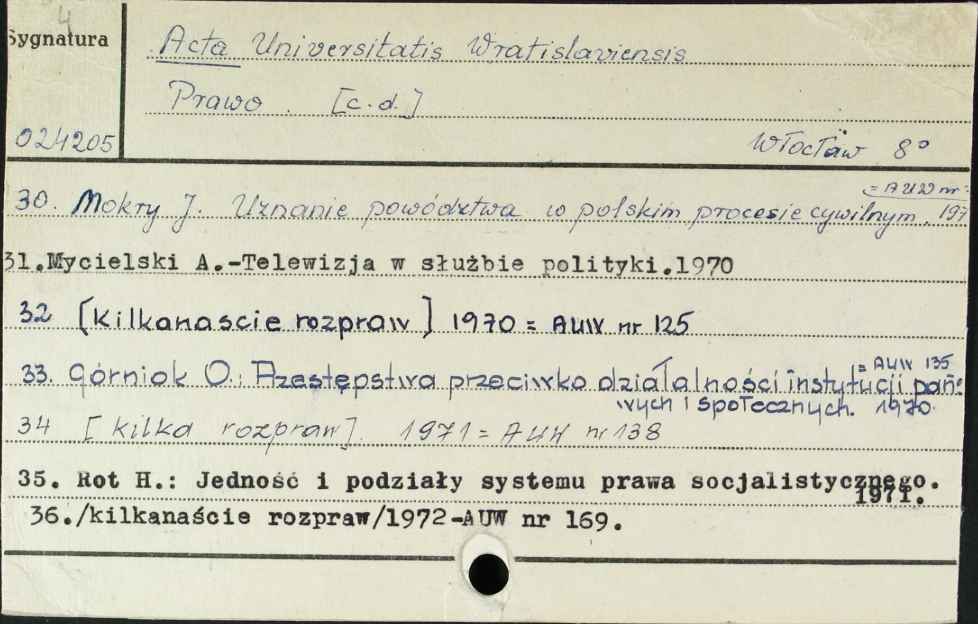 4
Sygnatura
Acta Universitatis Wratislaviensis
Prawo. [c.d.]
024205
Włocław 8°
= AUW nr
30. Mokry J. Uznanie powództwa w polskim procesie cywilnym. 197
31.Mycielski A.-Telewizja w służbie polityki.1970
32 [Kilkanascie rozpraw] 1970 = AUW nr 125
= AUW 135
33. Górniok O.: Przestępstwa przeciwko działalności instytucji pańs
wych i społecznych. 1970.
34 [kilka rozpraw]. 1971 = AUW nr 138
35. Rot H.: Jedność i podziały systemu prawa socjalistycznego.
1971.
36./kilkanaście rozpraw/1972-AUW nr 169.